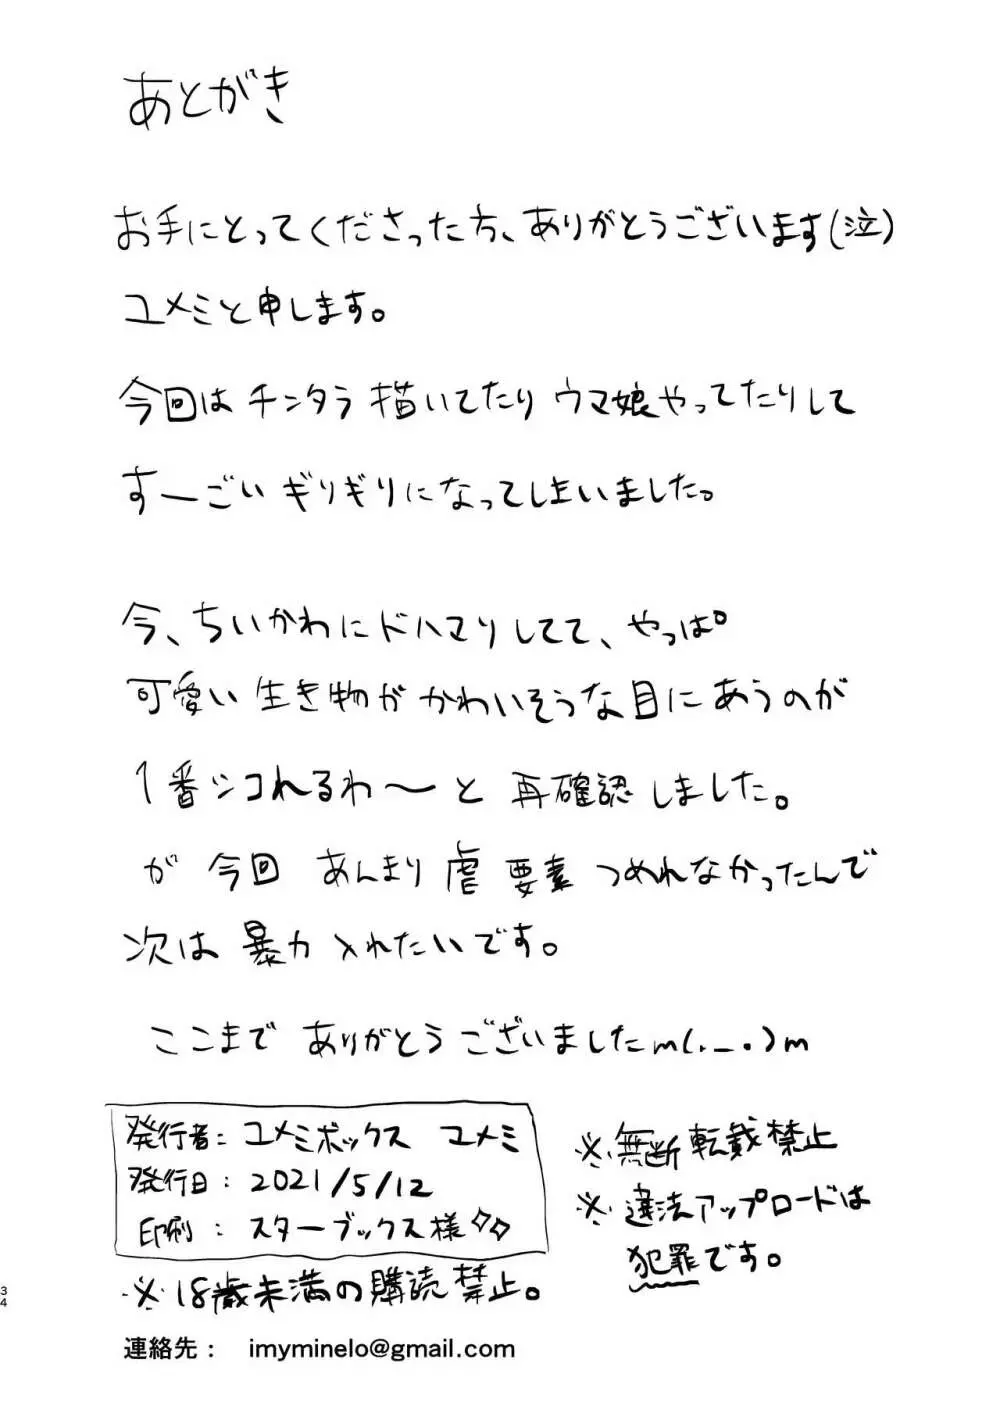 あとがき
お手にとってくださった方、ありがとうございます(泣)
ユメミと申します。
今回は チンタラ 描いてたり ウマ娘やってたりして
すーごい ギリギリになってしまいました。
今、ちいかわにドハマりしてて、やっぱ
可愛い 生き物が かわいそうな目にあうのが
1番シコれるわ〜と 再確認しました。
が 今回 あんまり 虐 要素 つめれなかったんで
次は 暴力 入れたいです。
ここまで ありがとう ございましたm(._.)m
発行者: ユメミボックス ユメミ
発行日: 2021/5/12
印刷: スターブックス様◇◇
※無断転載禁止
※違法アップロードは
犯罪です。
※18歳未満の購読禁止。
連絡先: imyminelo@gmail.com
34